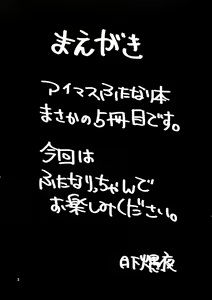 まえがき
アイマスふたなり本
まさかの5冊目です。
今回は
ふたなりっちゃんで
お楽しみください。
日下燗夜